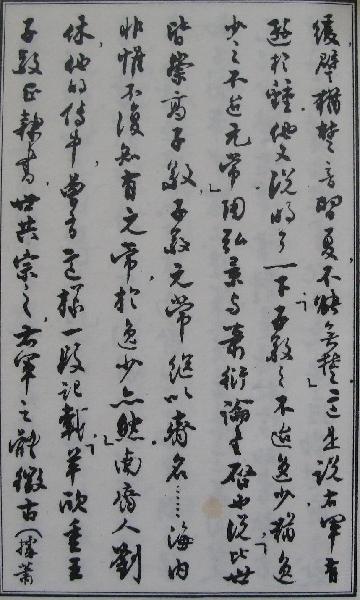 緩譬猶楚音習夏,不能無楚」這是說右軍有
遜於鍾他又說明了一下「子敬之不迨逸少猶逸
少之不迨元常」陶弘景与蕭衍論書啓也說「比世
皆崇高子敬,子敬元常繼以齊名……海内
非惟不復知有元常,於逸少亦然」南齊人劉
休,他的傳中曾有這樣一段記載「羊欣重王
子敬正隸書,世共宗之,右軍之體微古(據蕭